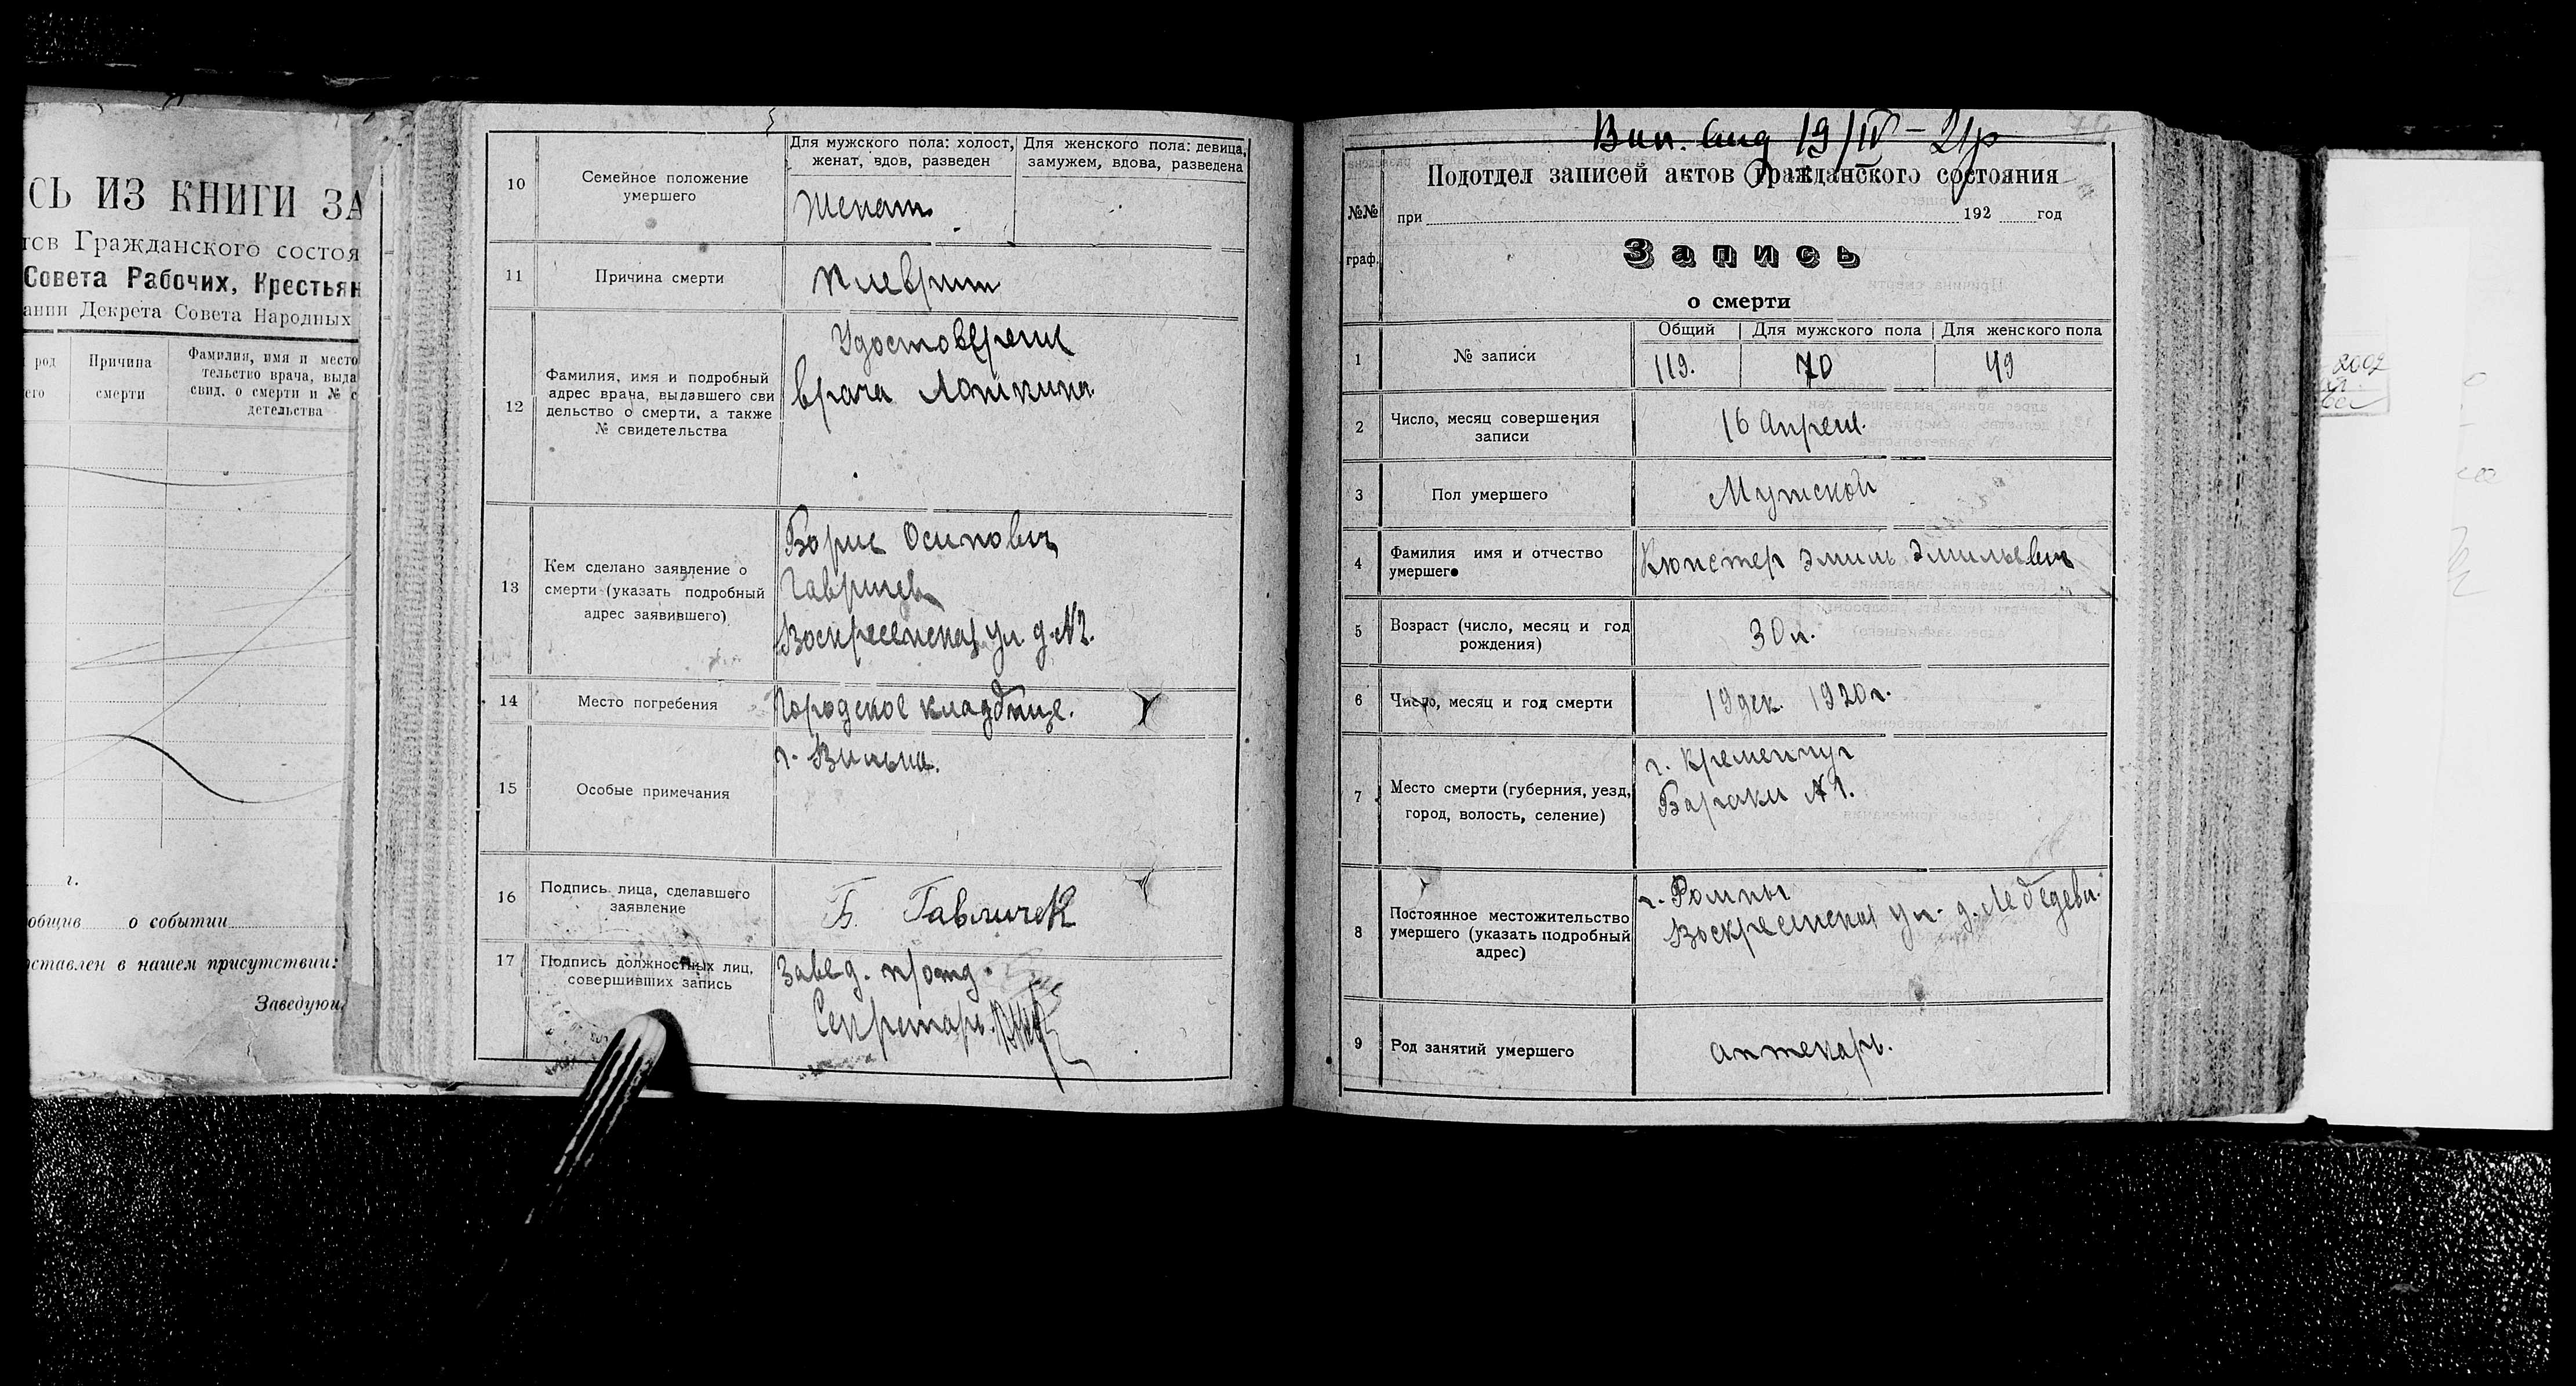 СЬ ИЗ КНИГИ ЗА
тов Гражданского состоя
Совета Рабочих, Крестьян
ании Декрета Совета Народных
род
его
Причина
смерти
Фамилия, имя и место
тельство врача, выда
свид. о смерти и № с
детельства
г.
общив о событии
оставлен в нашем присутствии:
Заведующ
10
Семейное положение
умершего
Для мужского пола: холост,
женат, вдов, разведен
Для женского пола: девица,
замужем, вдова, разведена
Женат
11
Причина смерти
плеврит
12
Фамилия, имя и подробный
адрес врача, выдавшего сви
дельство о смерти, а также
№ свидетельства
Удостоверение
врача Лоткина
13
Кем сделано заявление о
смерти (указать подробный
адрес заявившего)
Борис Осипович
Воскресенская ул. д. №2.
14
Место погребения
Городское кладбище.
15
Особые примечания
г. Вильна.
16
Подпись лица, сделавшего
заявление
Б. Гавличек
17
Подпись должностных лиц,
совершивших запись
Завед. п/отд.
Секретарь
19/IV - 21
Подотдел записей актов гражданского состояния
№№
граф.
при 192 год
Запись
о смерти
1
№ записи
Общий
Для мужского пола
Для женского пола
119.
70
49
2
Число, месяц совершения
записи
16 Апреля.
3
Пол умершего
Мужской
4
Фамилия имя и отчество
умершего
Кюнстер Эмиль Эмильевич
5
Возраст (число, месяц и год
рождения)
30 л.
6
Число, месяц и год смерти
19 дек. 1920 г.
7
Место смерти (губерния, уезд,
город, волость, селение)
г. Кременчуг
Бараки №1.
8
Постоянное местожительство
умершего (указать подробный
адрес)
г. Ромны
Воскресенская ул. д. Лебедева.
9
Род занятий умершего
аптекарь.
2002